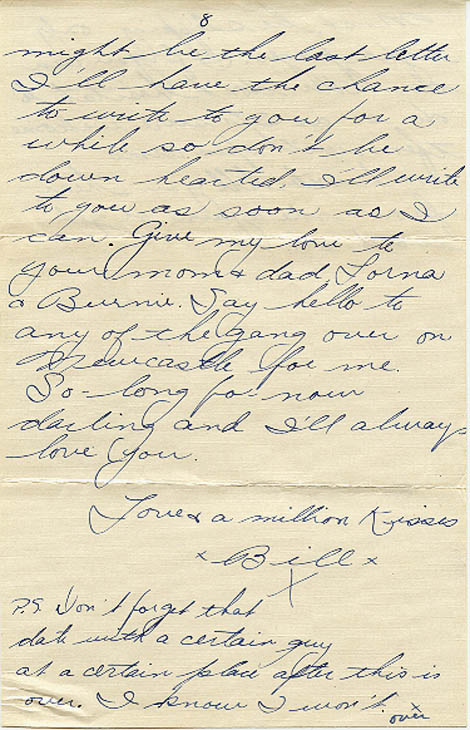 8
might be the last letter
I'll have the chance
to write to you for a
while so don't be
down hearted, I'll write
to you as soon as I
can. Give my love to
your mom & dad Lorna
& Burnie. Say hello to
any of the gang over on
Newcastle for me.
So-long for now
darling and I'll always
love you.
Love & a million Kisses
x Bill x
X
P.S. Don't forget that
date with a certain guy
at a certain place after this is
over. I know I won't.
x
over